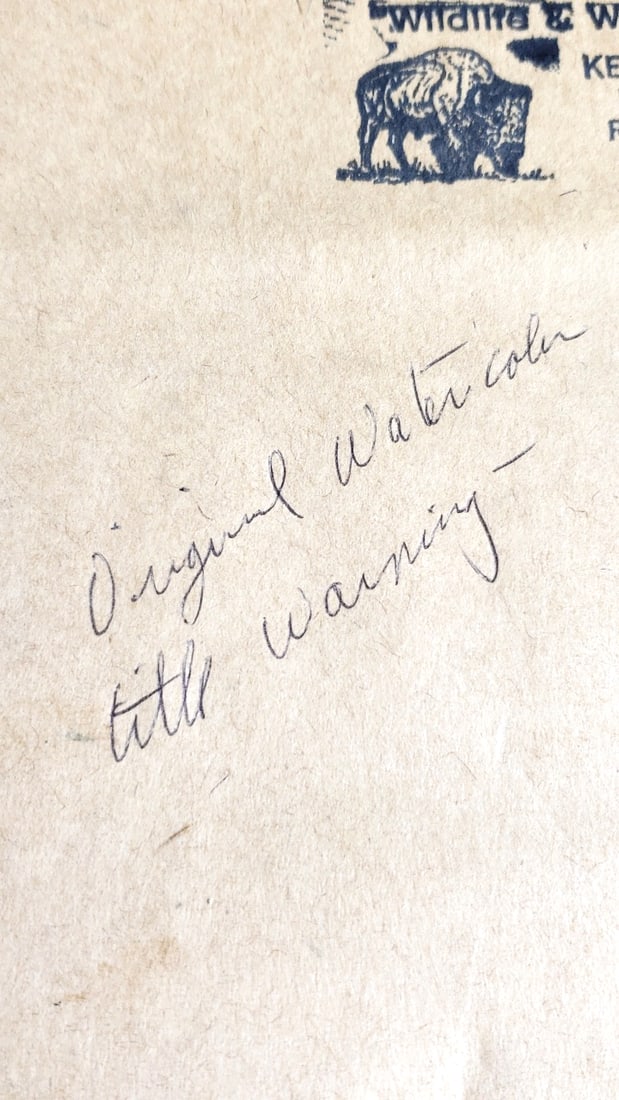 Wildlife & W
KE
R
Original Watercolor
title Warning-